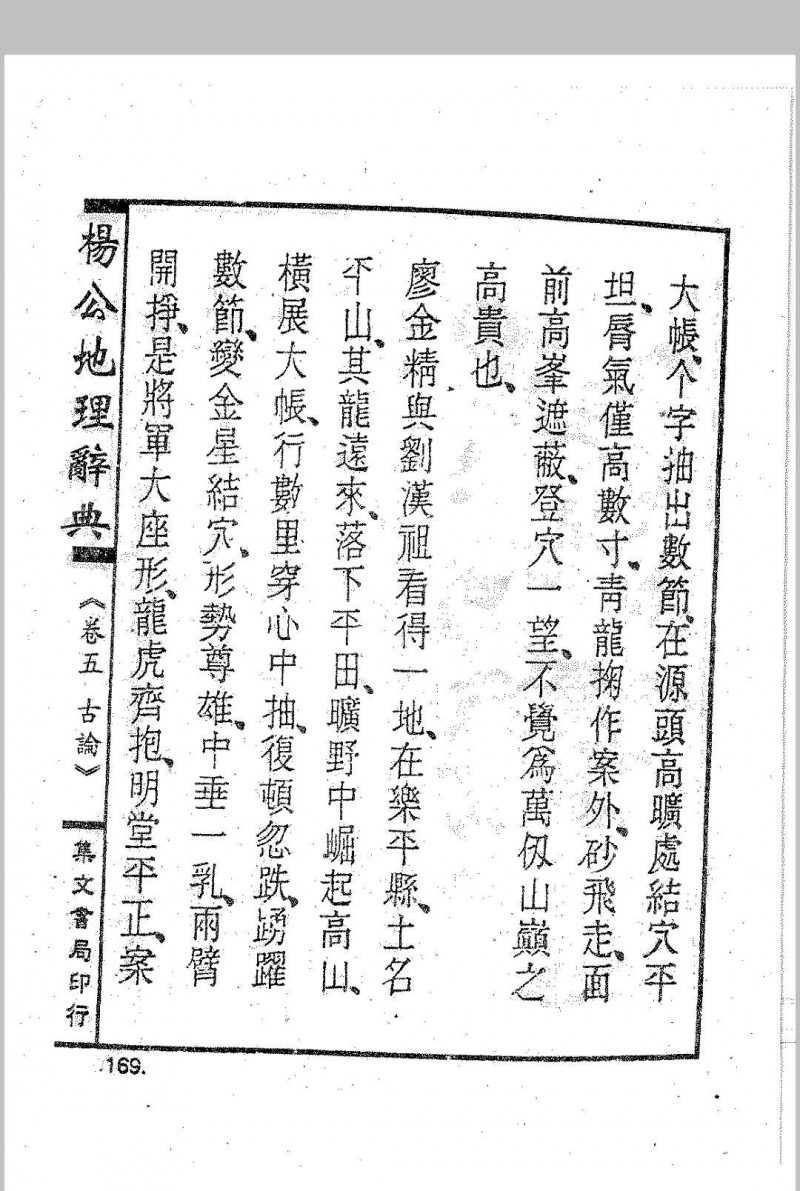 大帳、个字抽出數節、在源頭高曠處結穴平
坦、脣氣僅高數寸、靑龍掬作案外、砂飛走、面
前高峯遮蔽、登穴一望、不覺爲萬仭山巔之
高貴也、
廖金精與劉漢祖看得一地、在樂平縣、土名
平山、其龍遠來、落下平田、曠野中崛起高山、
橫展大帳、行數里穿心中抽、復頓忽跌、踴躍
數節、變金星結穴、形勢尊雄、中垂一乳、兩臂
開掙、是將軍大座形、龍虎齊抱、明堂平正、案
楊公地理辭典
《卷五 古論》
集文書局印行
169.